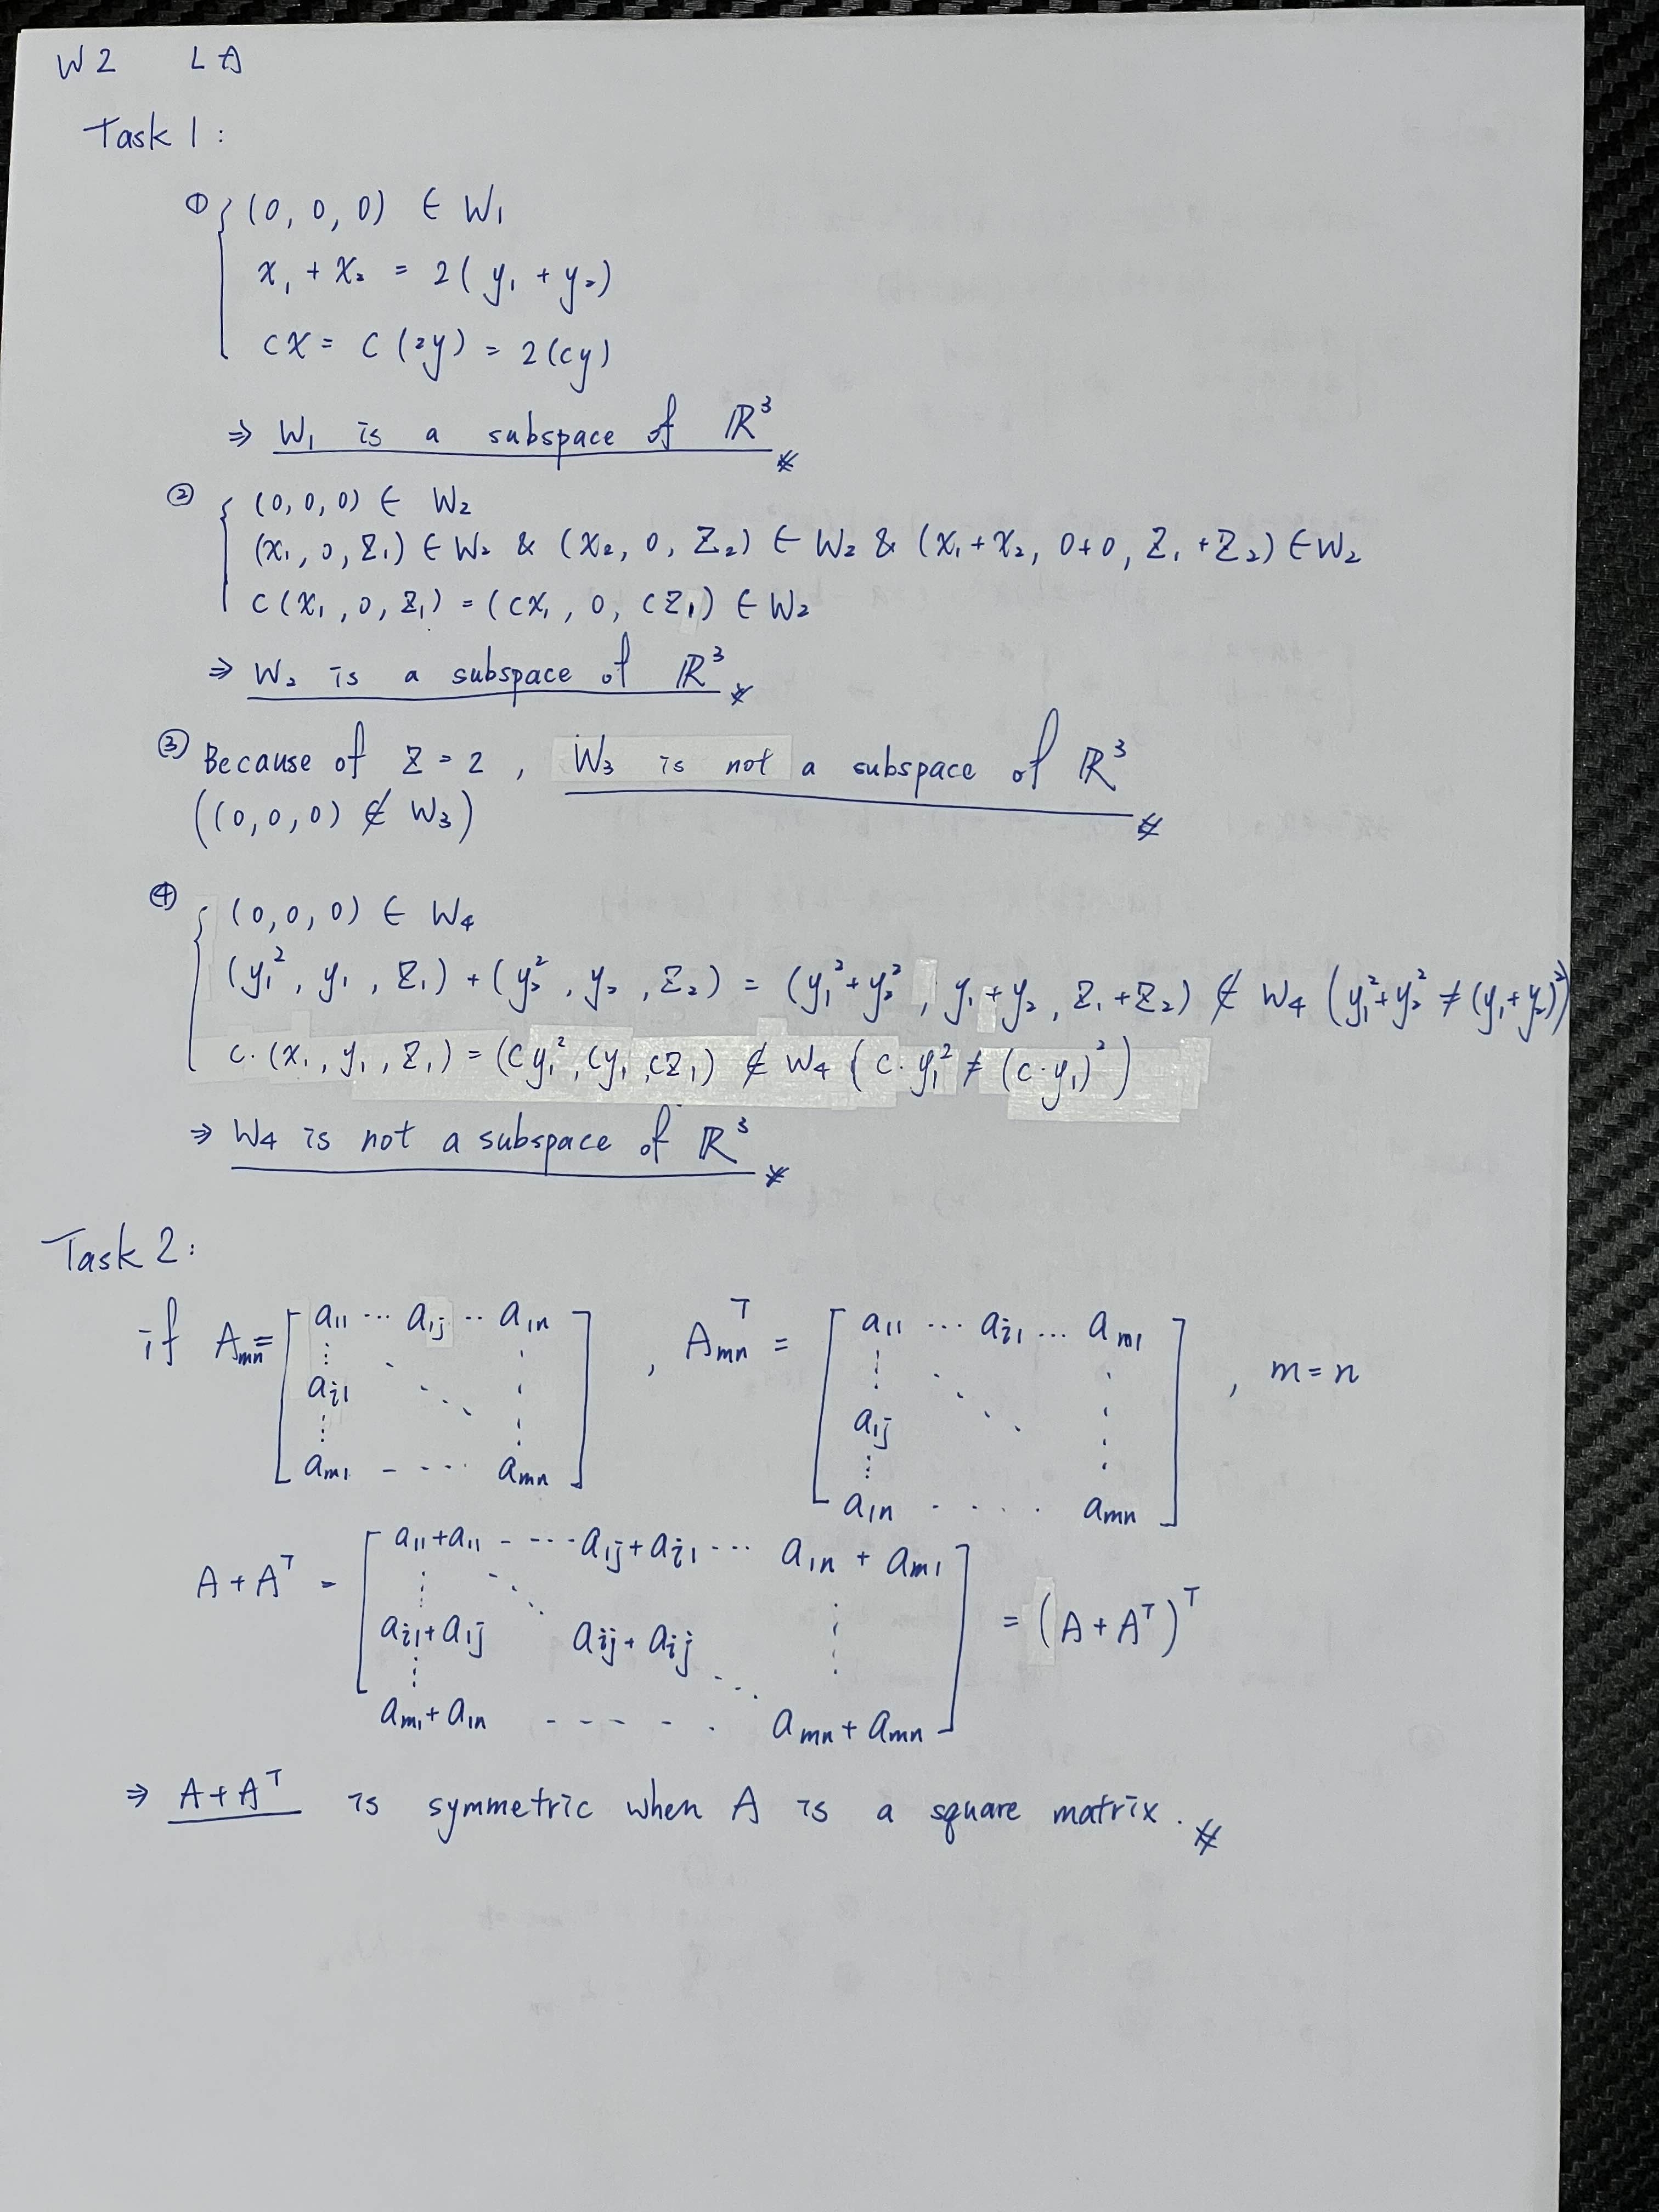 W2 LA
Task 1:
① (0, 0, 0) ∈ W₁
x₁ + x₂ = 2(y₁ + y₂)
cx = c(2y) = 2(cy)
⇒ W₁ is a subspace of ℝ³
② (0, 0, 0) ∈ W₂
(x₁, 0, z₁) ∈ W₂ & (x₂, 0, z₂) ∈ W₂ & (x₁+x₂, 0+0, z₁+z₂) ∈ W₂
c(x₁, 0, z₁) = (cx₁, 0, cz₁) ∈ W₂
⇒ W₂ is a subspace of ℝ³
③ Because of z = 2, W₃ is not a subspace of ℝ³
((0, 0, 0) ∉ W₃)
④ (0, 0, 0) ∈ W₄
(y₁², y₁, z₁) + (y₂², y₂, z₂) = (y₁²+y₂², y₁+y₂, z₁+z₂) ∉ W₄ (y₁²+y₂² ≠ (y₁+y₂)²)
c·(x₁, y₁, z₁) = (cy₁², cy₁, cz₁) ∉ W₄ (c·y₁² ≠ (c·y₁)²)
⇒ W₄ is not a subspace of ℝ³
Task 2:
if Aₘₙ = [a₁₁ ··· a₁ⱼ ·· a₁ₙ ; aᵢ₁ ; aₘ₁ - ··· aₘₙ], Aₘₙᵀ = [a₁₁ ··· aᵢ₁ ... aₘ₁ ; a₁ⱼ ; a₁ₙ · · · · aₘₙ], m = n
A + Aᵀ = [a₁₁+a₁₁ - ··· a₁ⱼ+aᵢ₁ ··· a₁ₙ + aₘ₁ ; aᵢ₁+a₁ⱼ aᵢⱼ+aᵢⱼ ; aₘ₁+a₁ₙ - - - - · aₘₙ+aₘₙ] = (A + Aᵀ)ᵀ
⇒ A + Aᵀ is symmetric when A is a square matrix.